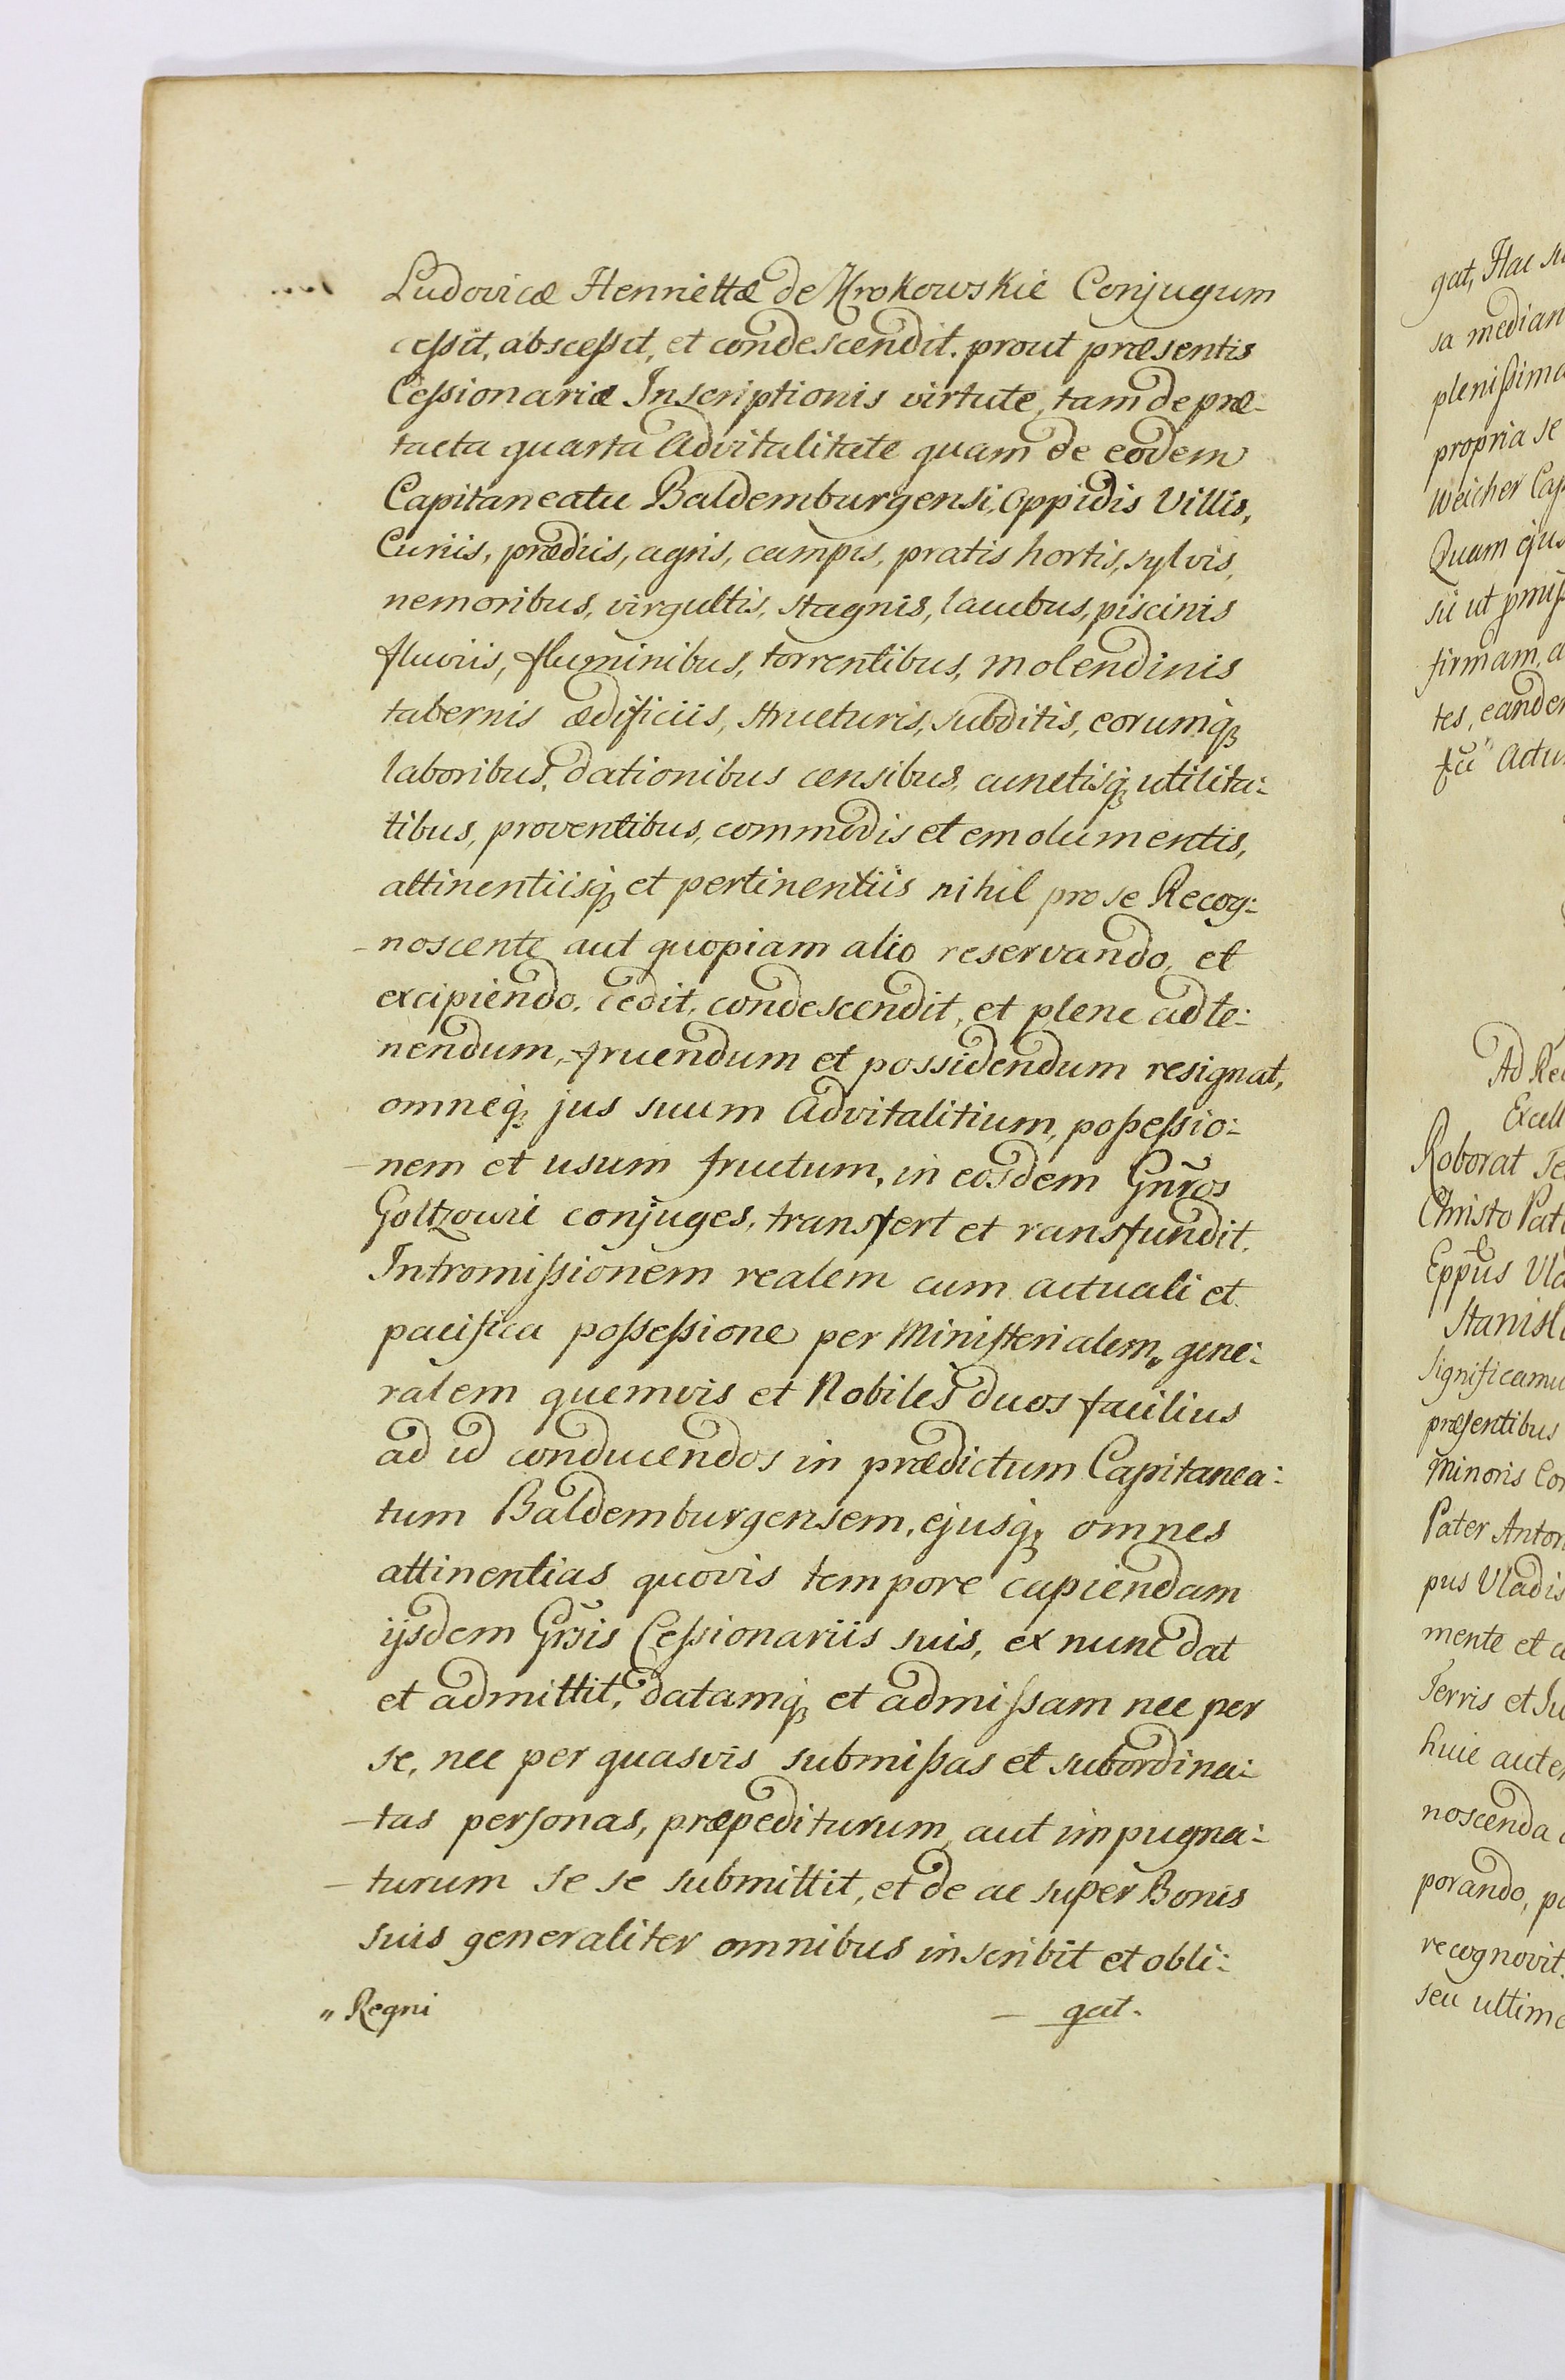 Ludovicæ Henriettæ de Krokowskie Conjugum
cessit, abscessit, et condescendit. prout præsentis
Cessionariæ Inscriptionis virtute, tam de præ-
tacta quarta Advitalitate quam de eodem
Capitaneatu Baldemburgensi, Oppidis Villis,
Curiis, prædiis, agris, campis, pratis hortis, sylvis,
nemoribus, virgultis, stagnis, lacubus, piscinis
fluviis, fluminibus, torrentibus, molendinis
tabernis ædificiis, structuris, subditis, eorumq3
laboribus, dationibus censibus, cunctisq3 utilita-
tibus, proventibus, commodis et emolumentis,
attinentiisq3 et pertinentiis nihil pro se Recog-
-noscente aut quopiam alio reservando, et
excipiendo. cedit, condescendit, et plene ad te-
nendum, fruendum et possidendum resignat,
omneq3 jus suum Advitalitium, possessio-
-nem et usum fructum, in eosdem Gnr̃os
Goltzowii conjuges, transfert et ransfundit.
Intromissionem realem cum actuali et
pacifica possessione per Ministerialem „ gene-
ralem quemvis et Nobiles duos facilius
ad id conducendos in prædictum Capitanea-
tum Baldemburgensem, ejusq3 omnes
attinentias quovis tempore capiendam
ijsdem Gr̃sis Cessionariis suis, ex nunc dat
et admittit, datamq3 et admissam nec per
se, nec per quasvis submissas et subordina-
-tas personas, præpediturum, aut impugna-
-turum se se submittit, et de ac super Bonis
suis generaliter omnibus inscribit et obli-
„ Regni
- gat.
gat, Hac
sa median
plenissima
propria se
Weicher Cap
Quam ejus
firmam, a
tes, eandem
Actu
Ad Re
Excell
Roborat Te
Christo Pat
Eppus Vla
Stanisl
significamu
præsentibus
Minoris Con
Pater Anton
pus Vladis
mente et c
Terris et Ju
huic aute
noscenda
porando, pe
recognovit.
seu ultima